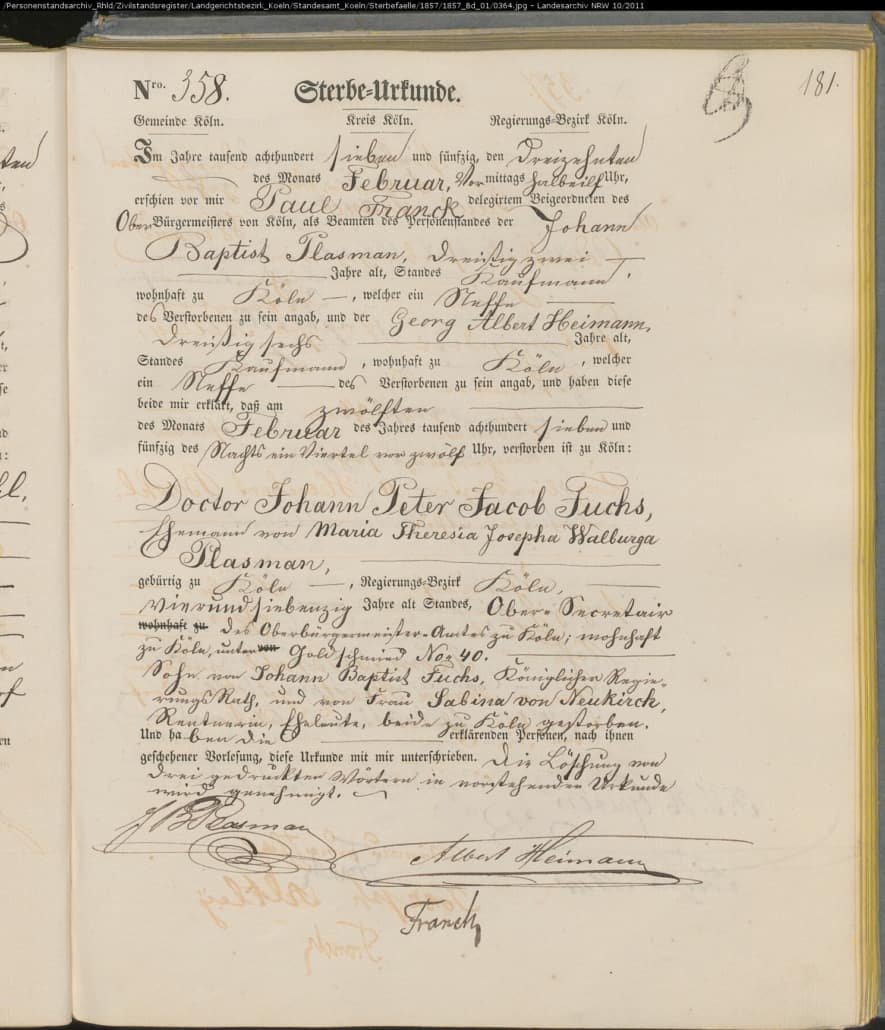 /Personenstandsarchiv_Rhld/Zivilstandsregister/Landgerichtsbezirk_Koeln/Standesamt_Koeln/Sterbefaelle/1857/1857_Bd_01/0364.jpg - Landesarchiv NRW 10/2011
181.
Nro. 358. Sterbe-Urkunde.
Gemeinde Köln. Kreis Köln. Regierungs-Bezirk Köln.
Im Jahre tausend achthundert sieben und fünfzig, den Dreizehnten
des Monats Februar, Vormittags halbeilf Uhr,
erschien vor mir Paul Franck delegirtem Beigeordneten des
Ober Bürgermeisters von Köln, als Beamten des Personenstandes der Johann
Baptist Plasman, dreißig zwei
Jahre alt, Standes Kaufmann,
wohnhaft zu Köln, welcher ein Neffe
des Verstorbenen zu sein angab, und der Georg Albert Heimann,
dreißig sechs Jahre alt,
Standes Kaufmann, wohnhaft zu Köln, welcher
ein Neffe des Verstorbenen zu sein angab, und haben diese
beide mir erklärt, daß am zwölften
des Monats Februar des Jahres tausend achthundert sieben und
fünfzig des Nachts ein Viertel vor zwölf Uhr, verstorben ist zu Köln:
Doctor Johann Peter Jacob Fuchs,
Ehemann von Maria Theresia Josepha Walburga
Plasman,
gebürtig zu Köln, Regierungs-Bezirk Köln,
vierundsiebenzig Jahre alt Standes, Ober-Secretair
wohnhaft zu des Oberbürgermeister-Amtes zu Köln; wohnhaft
zu Köln, unter von Goldschmied No. 40.
Sohn von Johann Baptist Fuchs, Königlicher Regie-
rungs Rath, und von Frau Sabina von Neukirch,
Rentnerin, Eheleute, beide zu Köln gestorben.
Und haben die erklärenden Personen, nach ihnen
geschehener Vorlesung, diese Urkunde mit mir unterschrieben. Die Löschung von
drei gedruckten Wörtern in vorstehender Urkunde
wird genehmigt.
J B Plasman
Albert Heimann
Franck